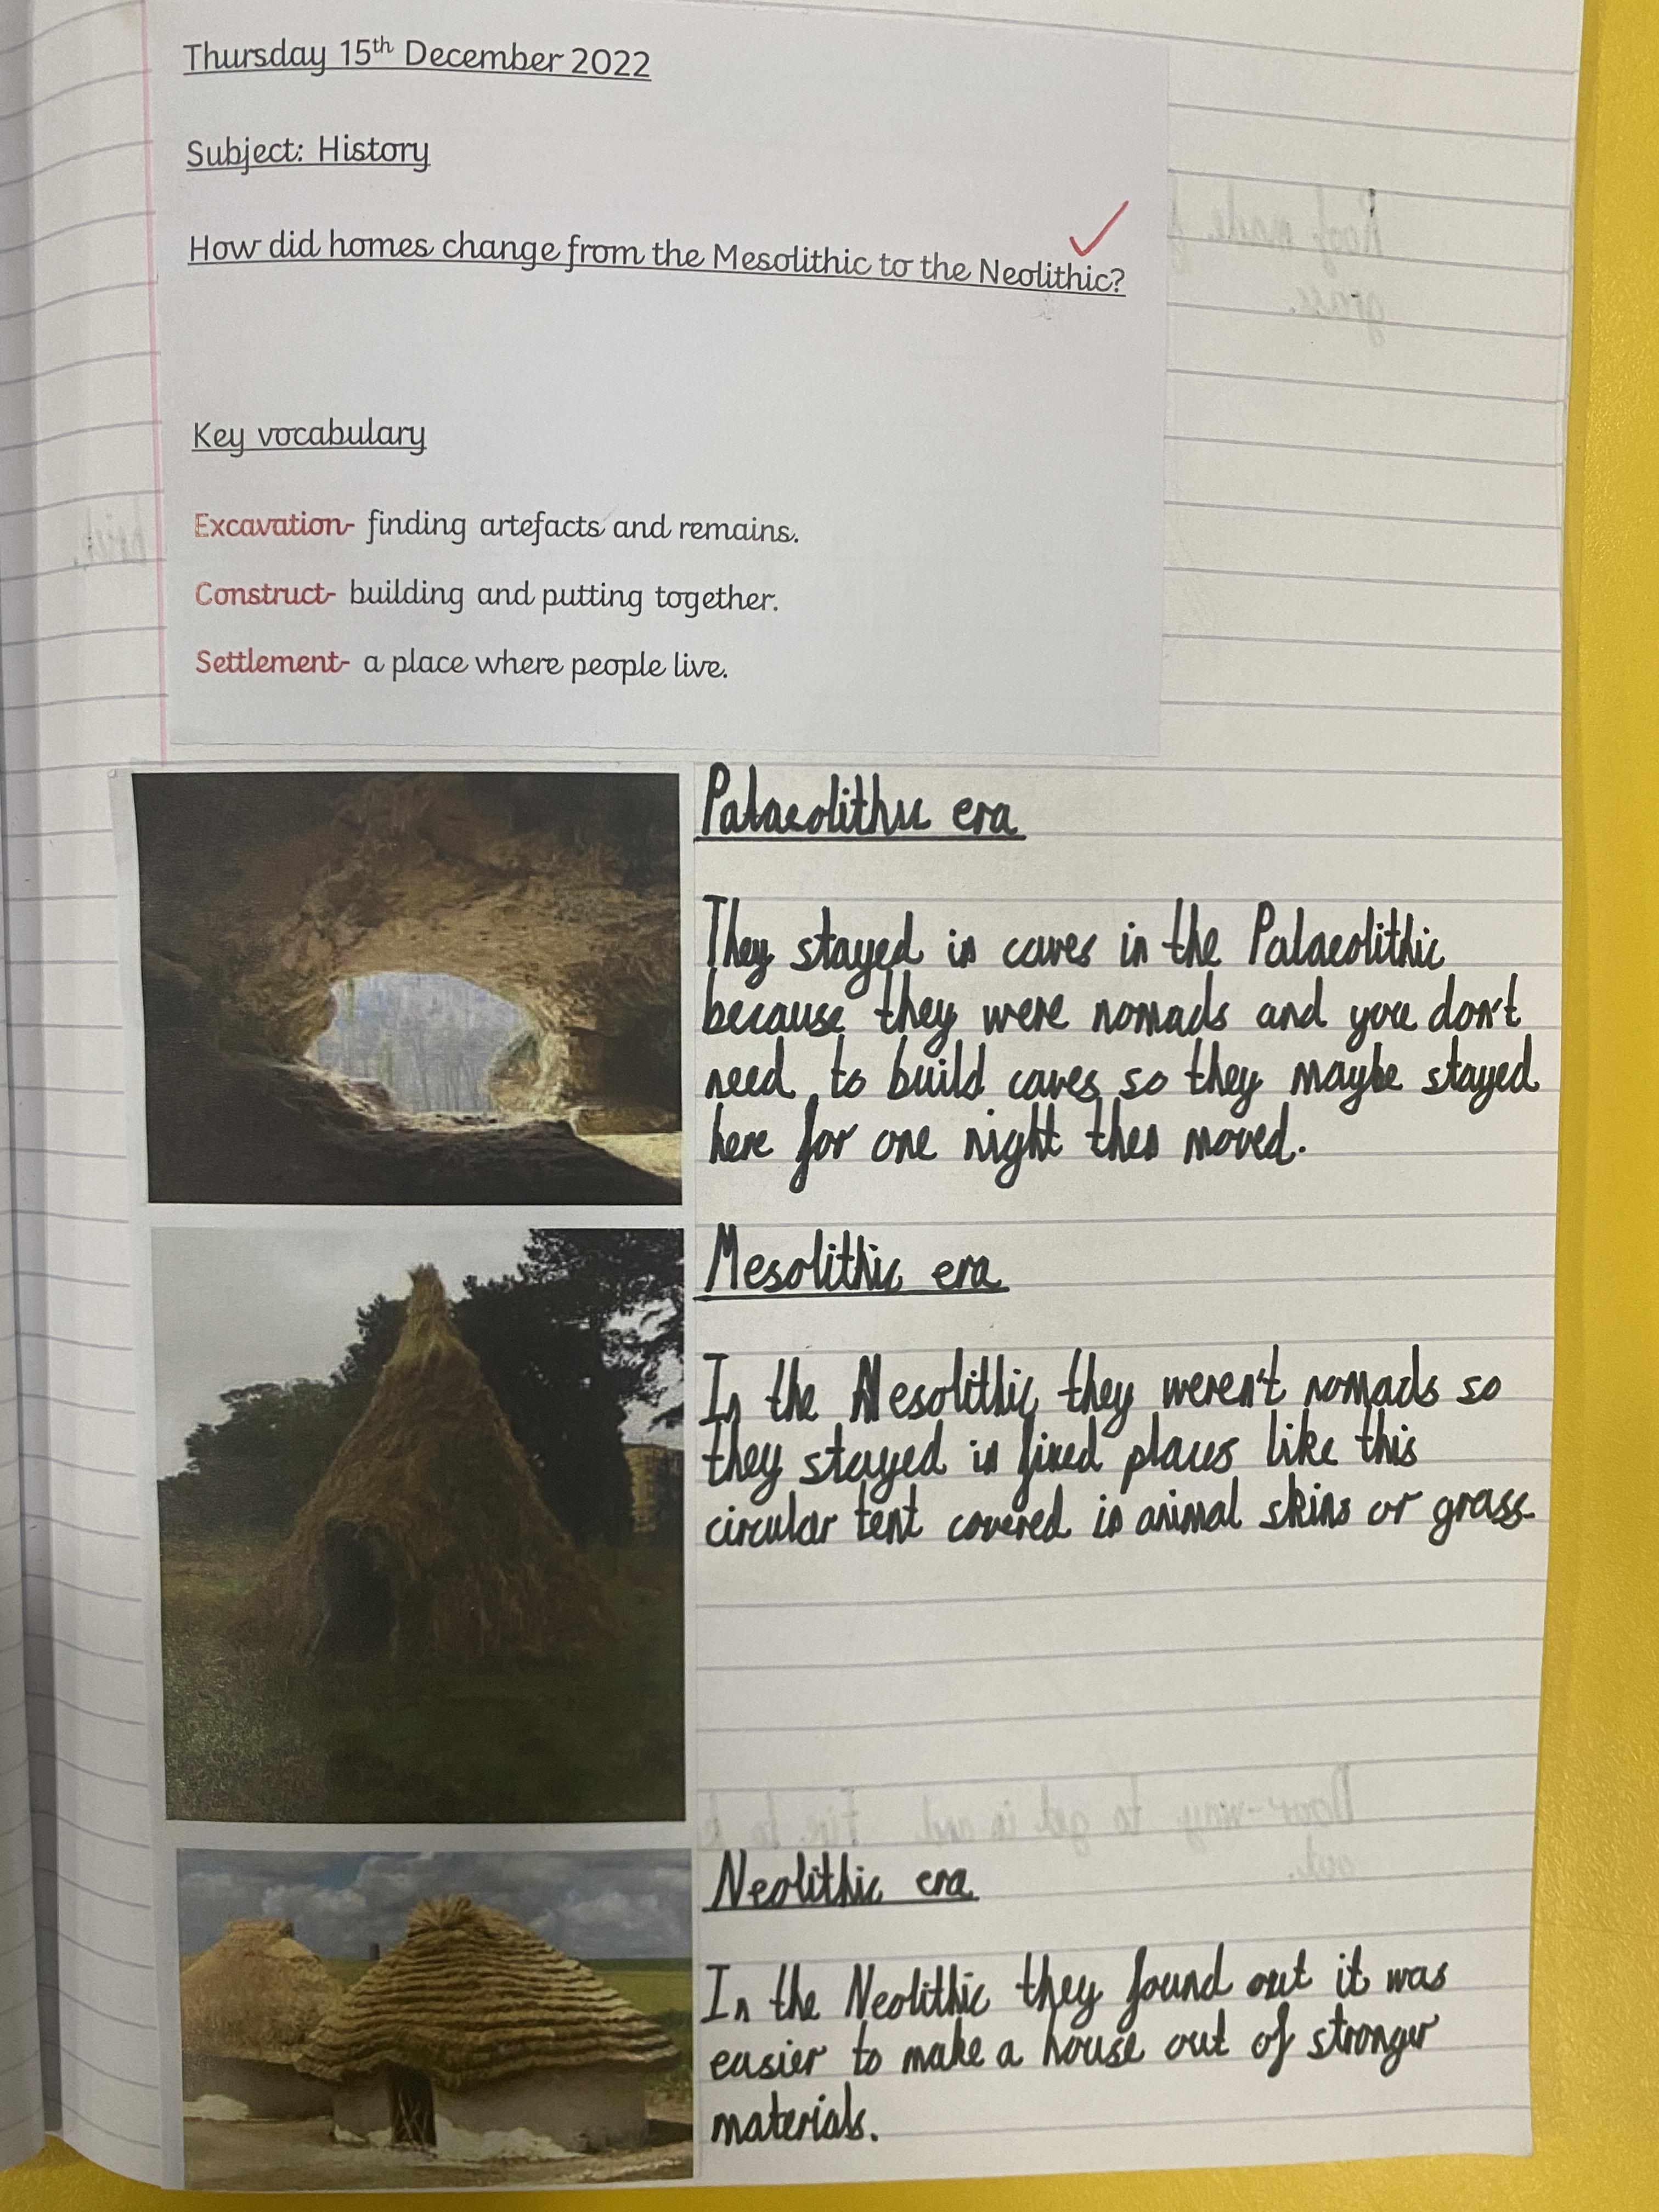 Thursday 15th December 2022
Subject: History
How did homes change from the Mesolithic to the Neolithic?
Key vocabulary
Excavation- finding artefacts and remains.
Construct- building and putting together.
Settlement- a place where people live.
Palaeolithic era
They stayed in caves in the Palaeolithic
because they were nomads and you don't
need to build caves so they maybe stayed
here for one night then moved.
Mesolithic era
In the Mesolithic they weren't nomads so
they stayed in fixed places like this
circular tent covered in animal skins or grass.
Neolithic era
In the Neolithic they found out it was
easier to make a house out of stronger
materials.